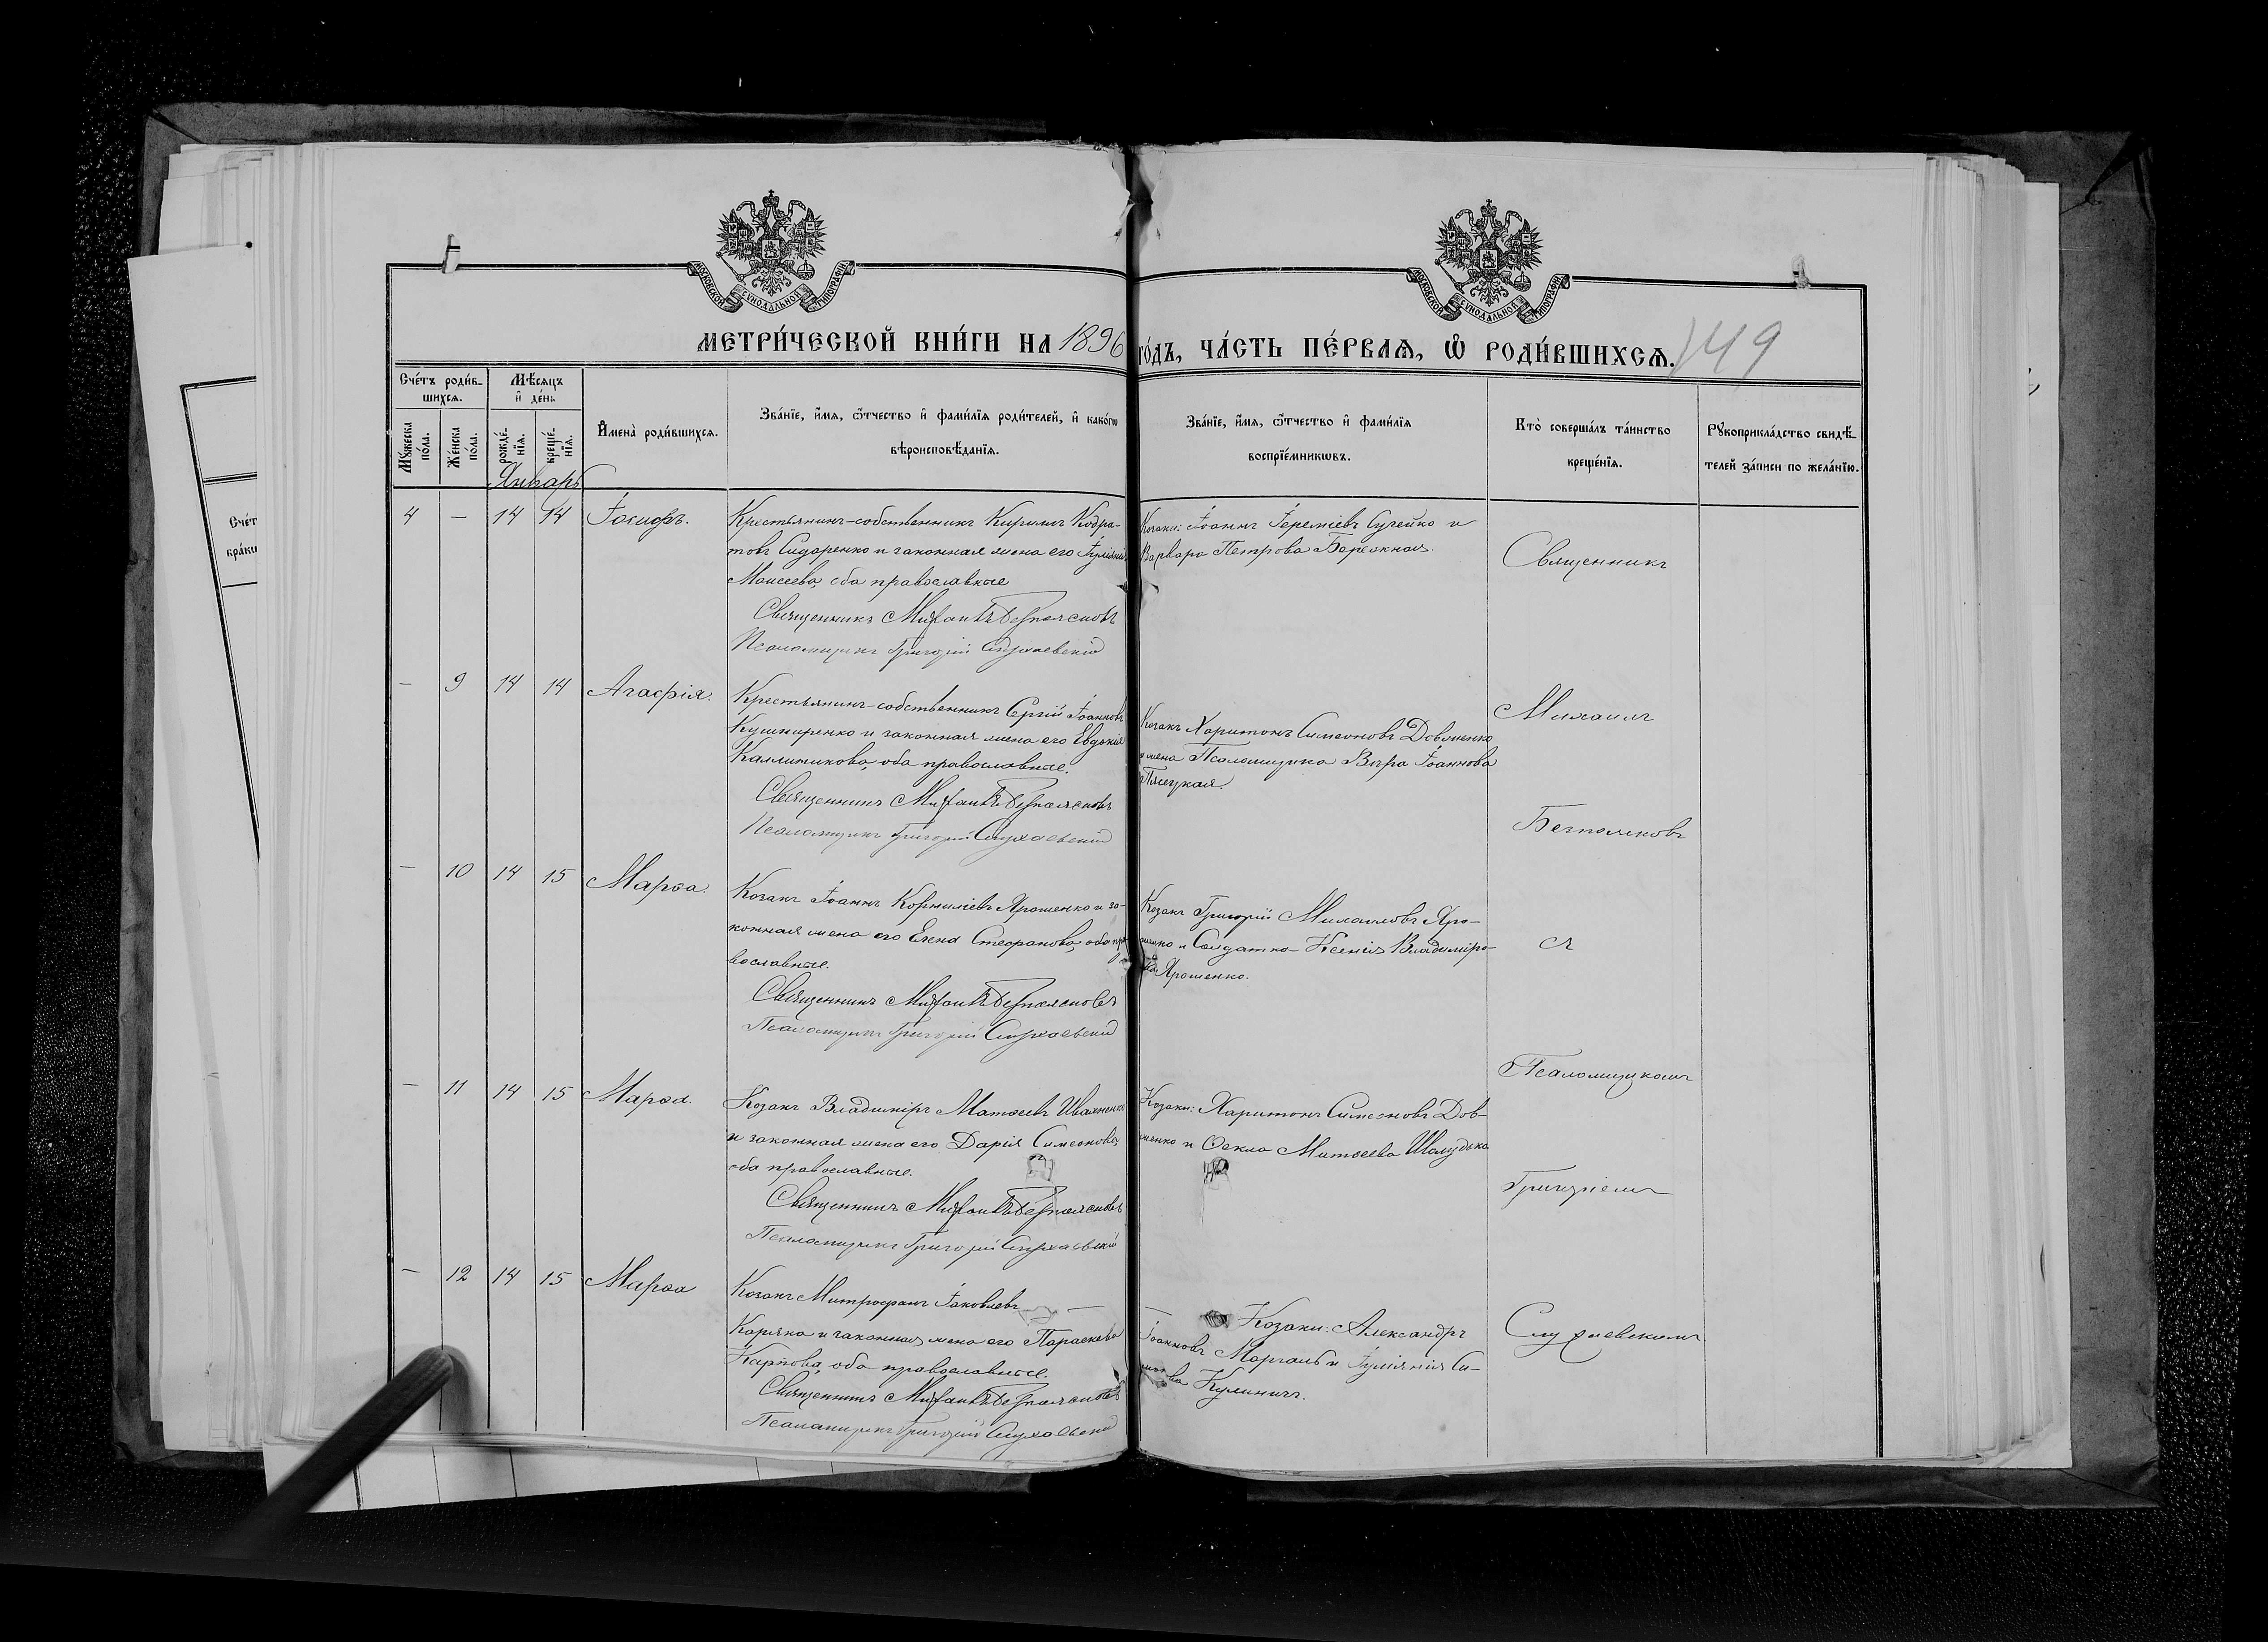 МОСКОВСКОЙ СѴНОДАЛЬНОЙ ТИПОГРАФІИ
МОСКОВСКОЙ СѴНОДАЛЬНОЙ ТИПОГРАФІИ
МЕТРИ́ЧЕСКОЙ КНИ́ГИ НА 1896 ГО́ДЪ, ЧА́СТЬ ПЕ́РВАЯ, Ѡ҆ РОДИ́ВШИХСЯ. 149
Сче́тъ роди́в-
шихся.
Мꙋ́жеска по́ла.
Же́нска по́ла.
Мѣ́сяцъ и҆ де́нь
рожде́-нїя.
креще́-нїя.
И҆мена̀ роди́вшихся.
Зва́нїе, и҆́мя, ѻ҆́тчество и҆ фами́лїя роди́телей, и҆ како́гѡ
вѣроисповѣ́данїя.
Зва́нїе, и҆́мя, ѻ҆́тчество и҆ фами́лїя
воспрїе́мникѡвъ.
Кто̀ соверша́лъ та́инство
креще́нїя.
Рꙋкоприкла́дство свидѣ́-
телей за́писи по жела́нїю.
Январь
4 — 14 14 Іосифъ.
Крестьянинъ-собственникъ Кирилъ Кодра-
товъ Сидоренко и законная жена его Іуліанія
Моисеева, оба православные
Священникъ Михаилъ Безпоясновъ
Псаломщикъ Григорій Слухаевскій
Козаки: Іоаннъ Іереміевъ Сулейко и
Варвара Петрова Бережная.
Священникъ
— 9 14 14 Агафія.
Крестьянинъ-собственникъ Сергій Іоанновъ
Кушниренко и законная жена его Евдокія
Каллиникова, оба православные.
Священникъ Михаилъ Безпоясновъ
Псаломщикъ Григорій Слухаевскій
Козакъ Харитонъ Симеоновъ Довженко
и жена Псаломщика Вѣра Іоаннова
Михаилъ
Безпоясновъ
— 10 14 15 Марѳа.
Козакъ Іоаннъ Корниліевъ Ярошенко и за-
конная жена его Елена Стефанова, оба пра-
вославные.
Священникъ Михаилъ Безпоясновъ
Псаломщикъ Григорій Слухаевскій
Козакъ Григорій Михаиловъ Яро-
шенко и Солдатка Ксенія Владиміро-
ва Ярошенко.
съ
— 11 14 15 Марѳа.
Козакъ Владиміръ Матѳеевъ Ивахненко
и законная жена его Дарія Симеонова,
оба православные.
Священникъ Михаилъ Безпоясновъ
Псаломщикъ Григорій Слухаевскій
Козаки: Харитонъ Симеоновъ Дов-
женко и Ѳекла Матѳеева Шолудько
Псаломщикомъ
Григоріемъ
— 12 14 15 Марѳа
Козакъ Митрофанъ Іаковлевъ —
Каряка и законная жена его Параскева
Карпова, оба православные.
Священникъ Михаилъ Безпоясновъ
Псаломщикъ Григорій Слухаевскій
— Козаки: Александръ
Іоанновъ Моргаль и Іуліанія Си-
монова Кулиничъ.
Слухаевскимъ
Сче́т
бра́ки